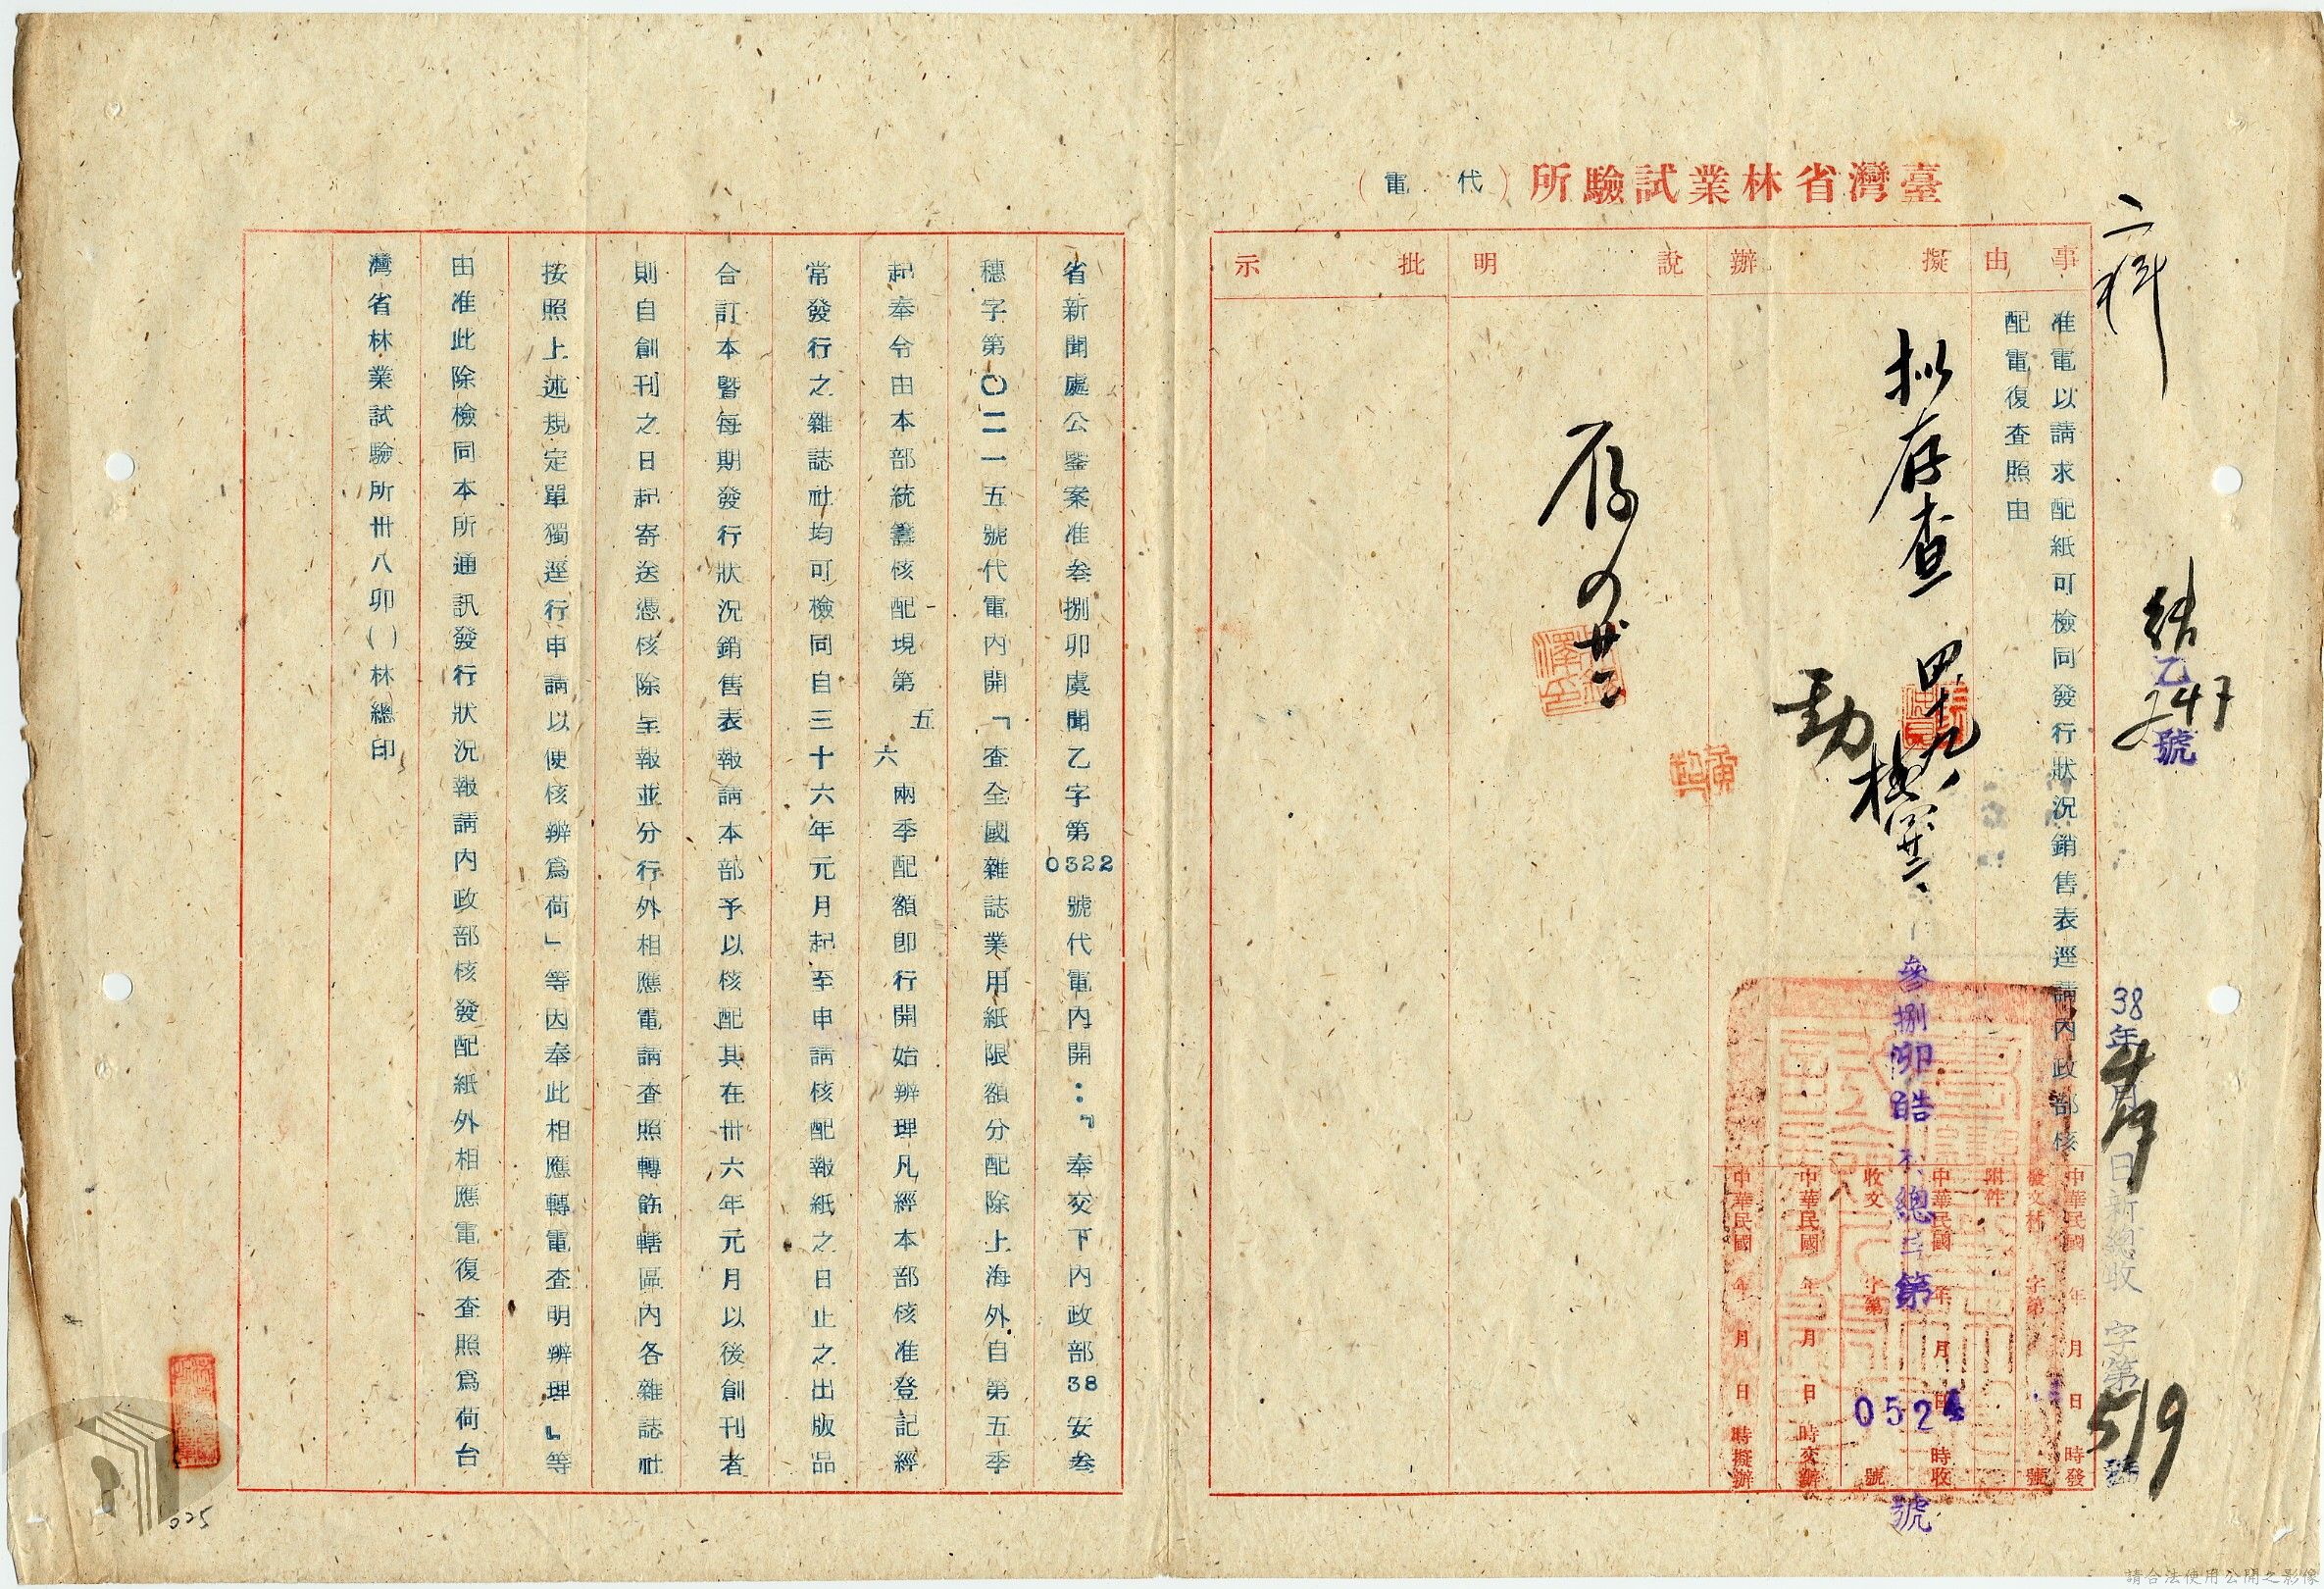 臺灣省林業試驗所（代電）
二科
結
乙
247
號
38年4月19日新總收字第519號
事由
准電以請求配紙可檢同發行狀況銷售表逕請內政部核
配電復查照由
擬辦
拟存查
說明
批示
中華民國 年 月 日 時發
發文 字第 號
附件
中華民國 年 月 日 時收
收文 字第 號
中華民國 年 月 日 時交辦
中華民國 年 月 日 時擬辦
參捌卯皓 總 第0524號
省新聞處公鑒案准叁捌卯虞聞乙字第0322號代電內開：『奉交下內政部38安叁
穗字第〇二一五號代電內開「查全國雜誌業用紙限額分配除上海外自第五季
起奉令由本部統籌核配現第五六兩季配額卽行開始辦理凡經本部核准登記經
常發行之雜誌社均可檢同自三十六年元月起至申請核配報紙之日止之出版品
合訂本暨每期發行狀況銷售表報請本部予以核配其在卅六年元月以後創刊者
則自創刊之日起寄送憑核除呈報並分行外相應電請查照轉飭轄區內各雜誌社
按照上述規定單獨逕行申請以便核辦爲荷」等因奉此相應轉電查明辦理』等
由准此除檢同本所通訊發行狀況報請內政部核發配紙外相應電復查照爲荷台
灣省林業試驗所卅八卯（）林總印
025
請合法使用公開之影像